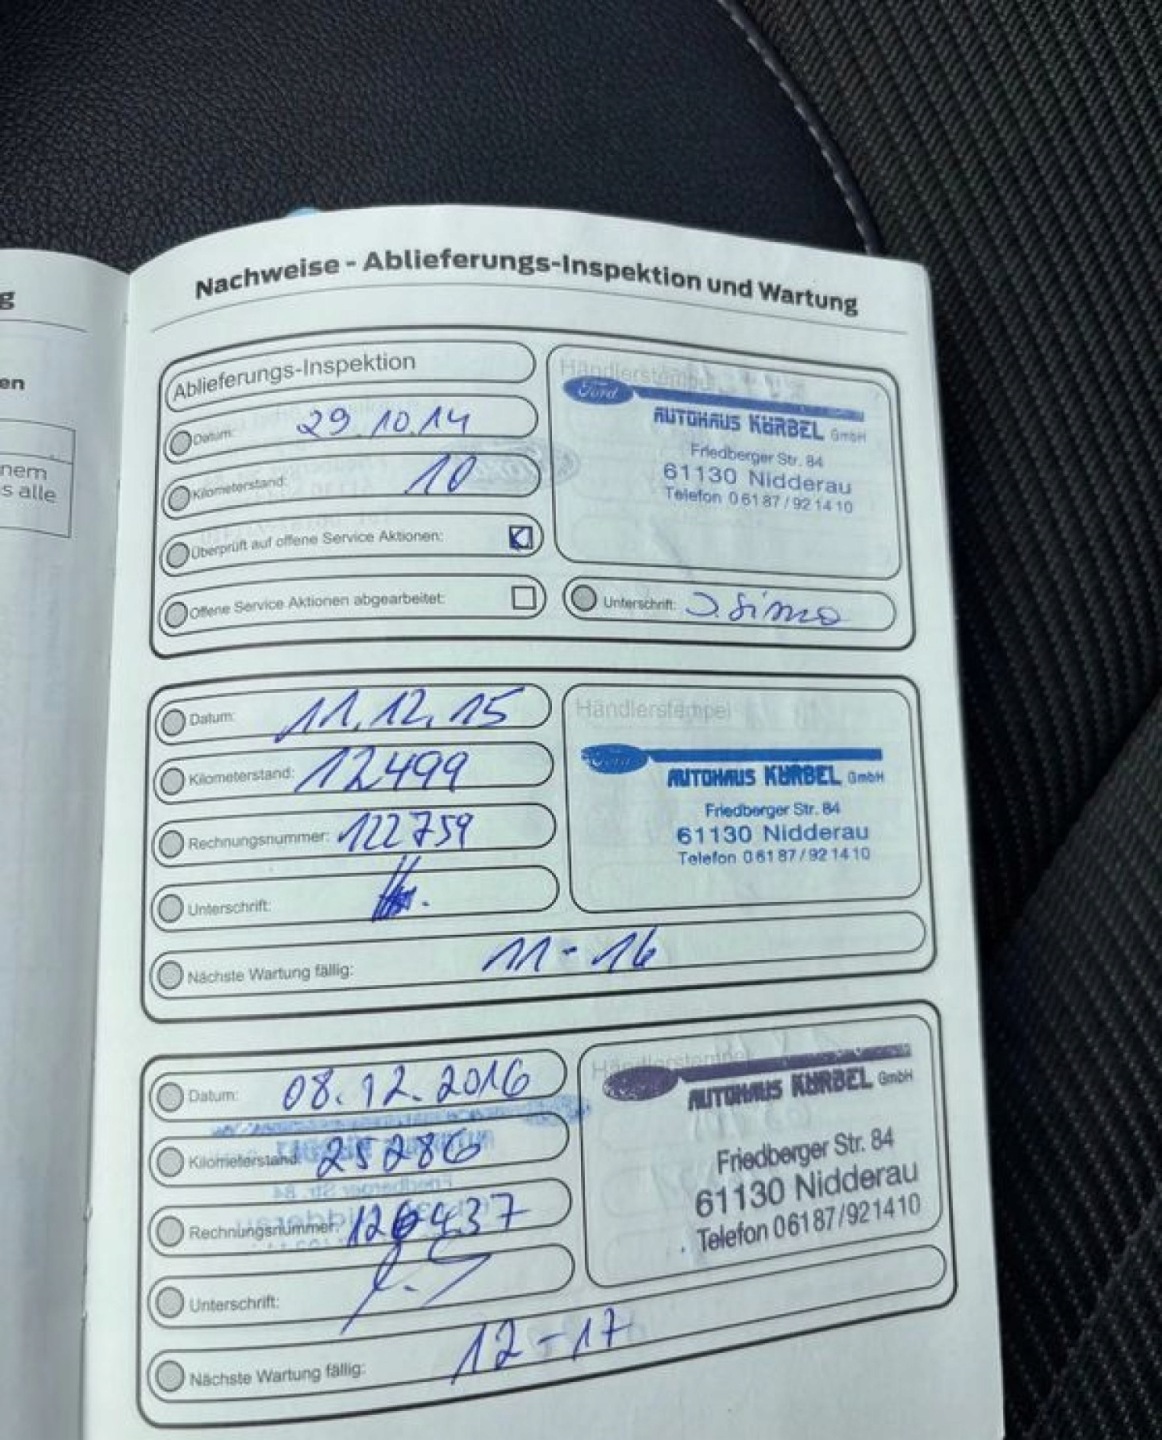 g
en
nem
s alle
Nachweise - Ablieferungs-Inspektion und Wartung
Ablieferungs-Inspektion
Datum: 29.10.14
Kilometerstand: 10
Überprüft auf offene Service Aktionen:
Offene Service Aktionen abgearbeitet:
Händlerstempel
Ford
AUTOHAUS KÜRBEL GmbH
Friedberger Str. 84
61130 Nidderau
Telefon 0 61 87 / 92 14 10
Unterschrift: J. Simo
Datum: 11.12.15
Kilometerstand: 12499
Rechnungsnummer: 122759
Unterschrift:
Händlerstempel
Ford
AUTOHAUS KÜRBEL GmbH
Friedberger Str. 84
61130 Nidderau
Telefon 0 61 87 / 92 14 10
Nächste Wartung fällig: 11-16
Datum: 08.12.2016
Kilometerstand: 25286
Rechnungsnummer: 126437
Unterschrift:
Händlerstempel
AUTOHAUS KÜRBEL GmbH
Friedberger Str. 84
61130 Nidderau
Telefon 0 61 87 / 92 14 10
Nächste Wartung fällig: 12-17